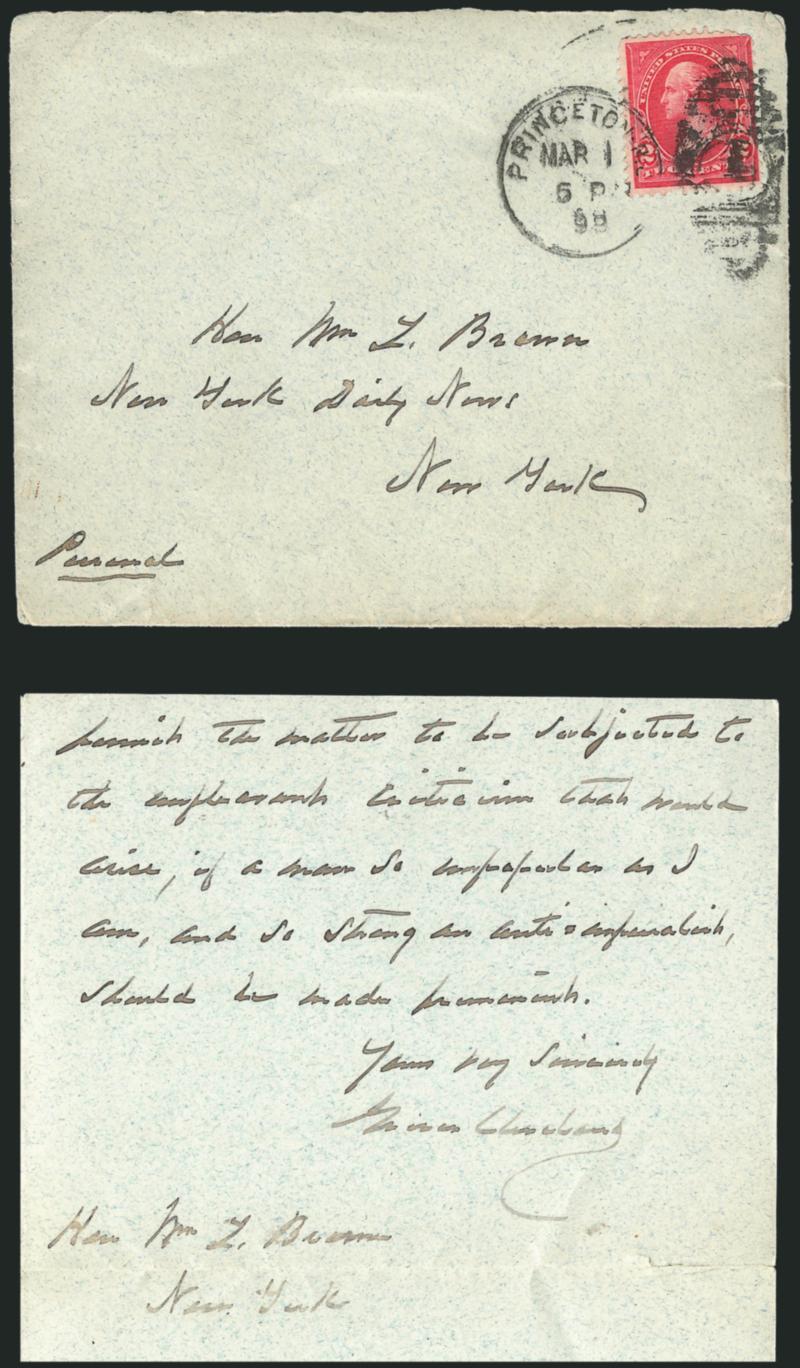 UNITED STATES POSTAGE
PRINCETON, N.J.
MAR 1
6 PM
98
2 TWO CENTS 2
Hon Wm L. Brown
New York Daily News
New York
Personal
permit the matter to be subjected to
the unpleasant criticism that would
arise, if a man so unpopular as I
am, and so strong an anti=imperialist,
should be made prominent.
Yours very Sincerely
Grover Cleveland
Hon Wm L. Brown
New York